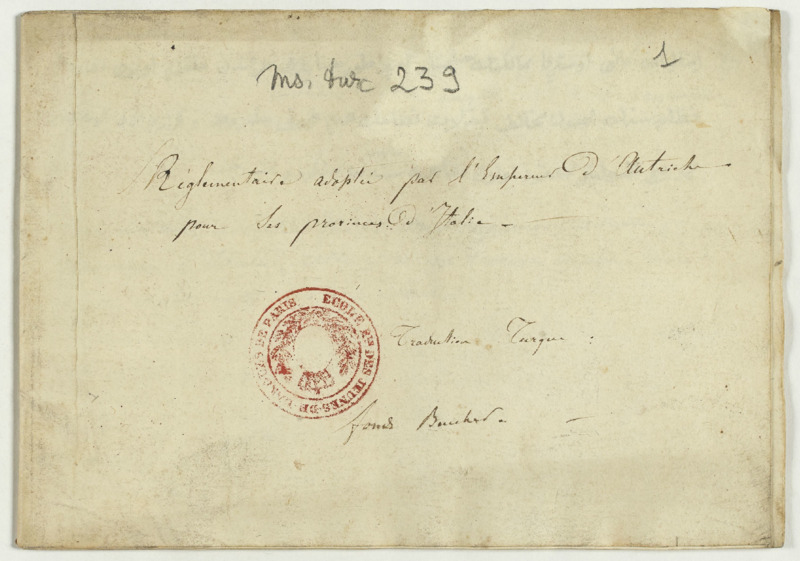 Ms. turc 239
1
Réglementaire adoptée par l'Empereur d'Autriche
pour ses provinces d'Italie
ECOLE Rle DES JEUNES-DE-LANGUES DE PARIS
Traduction Turque :
fonds